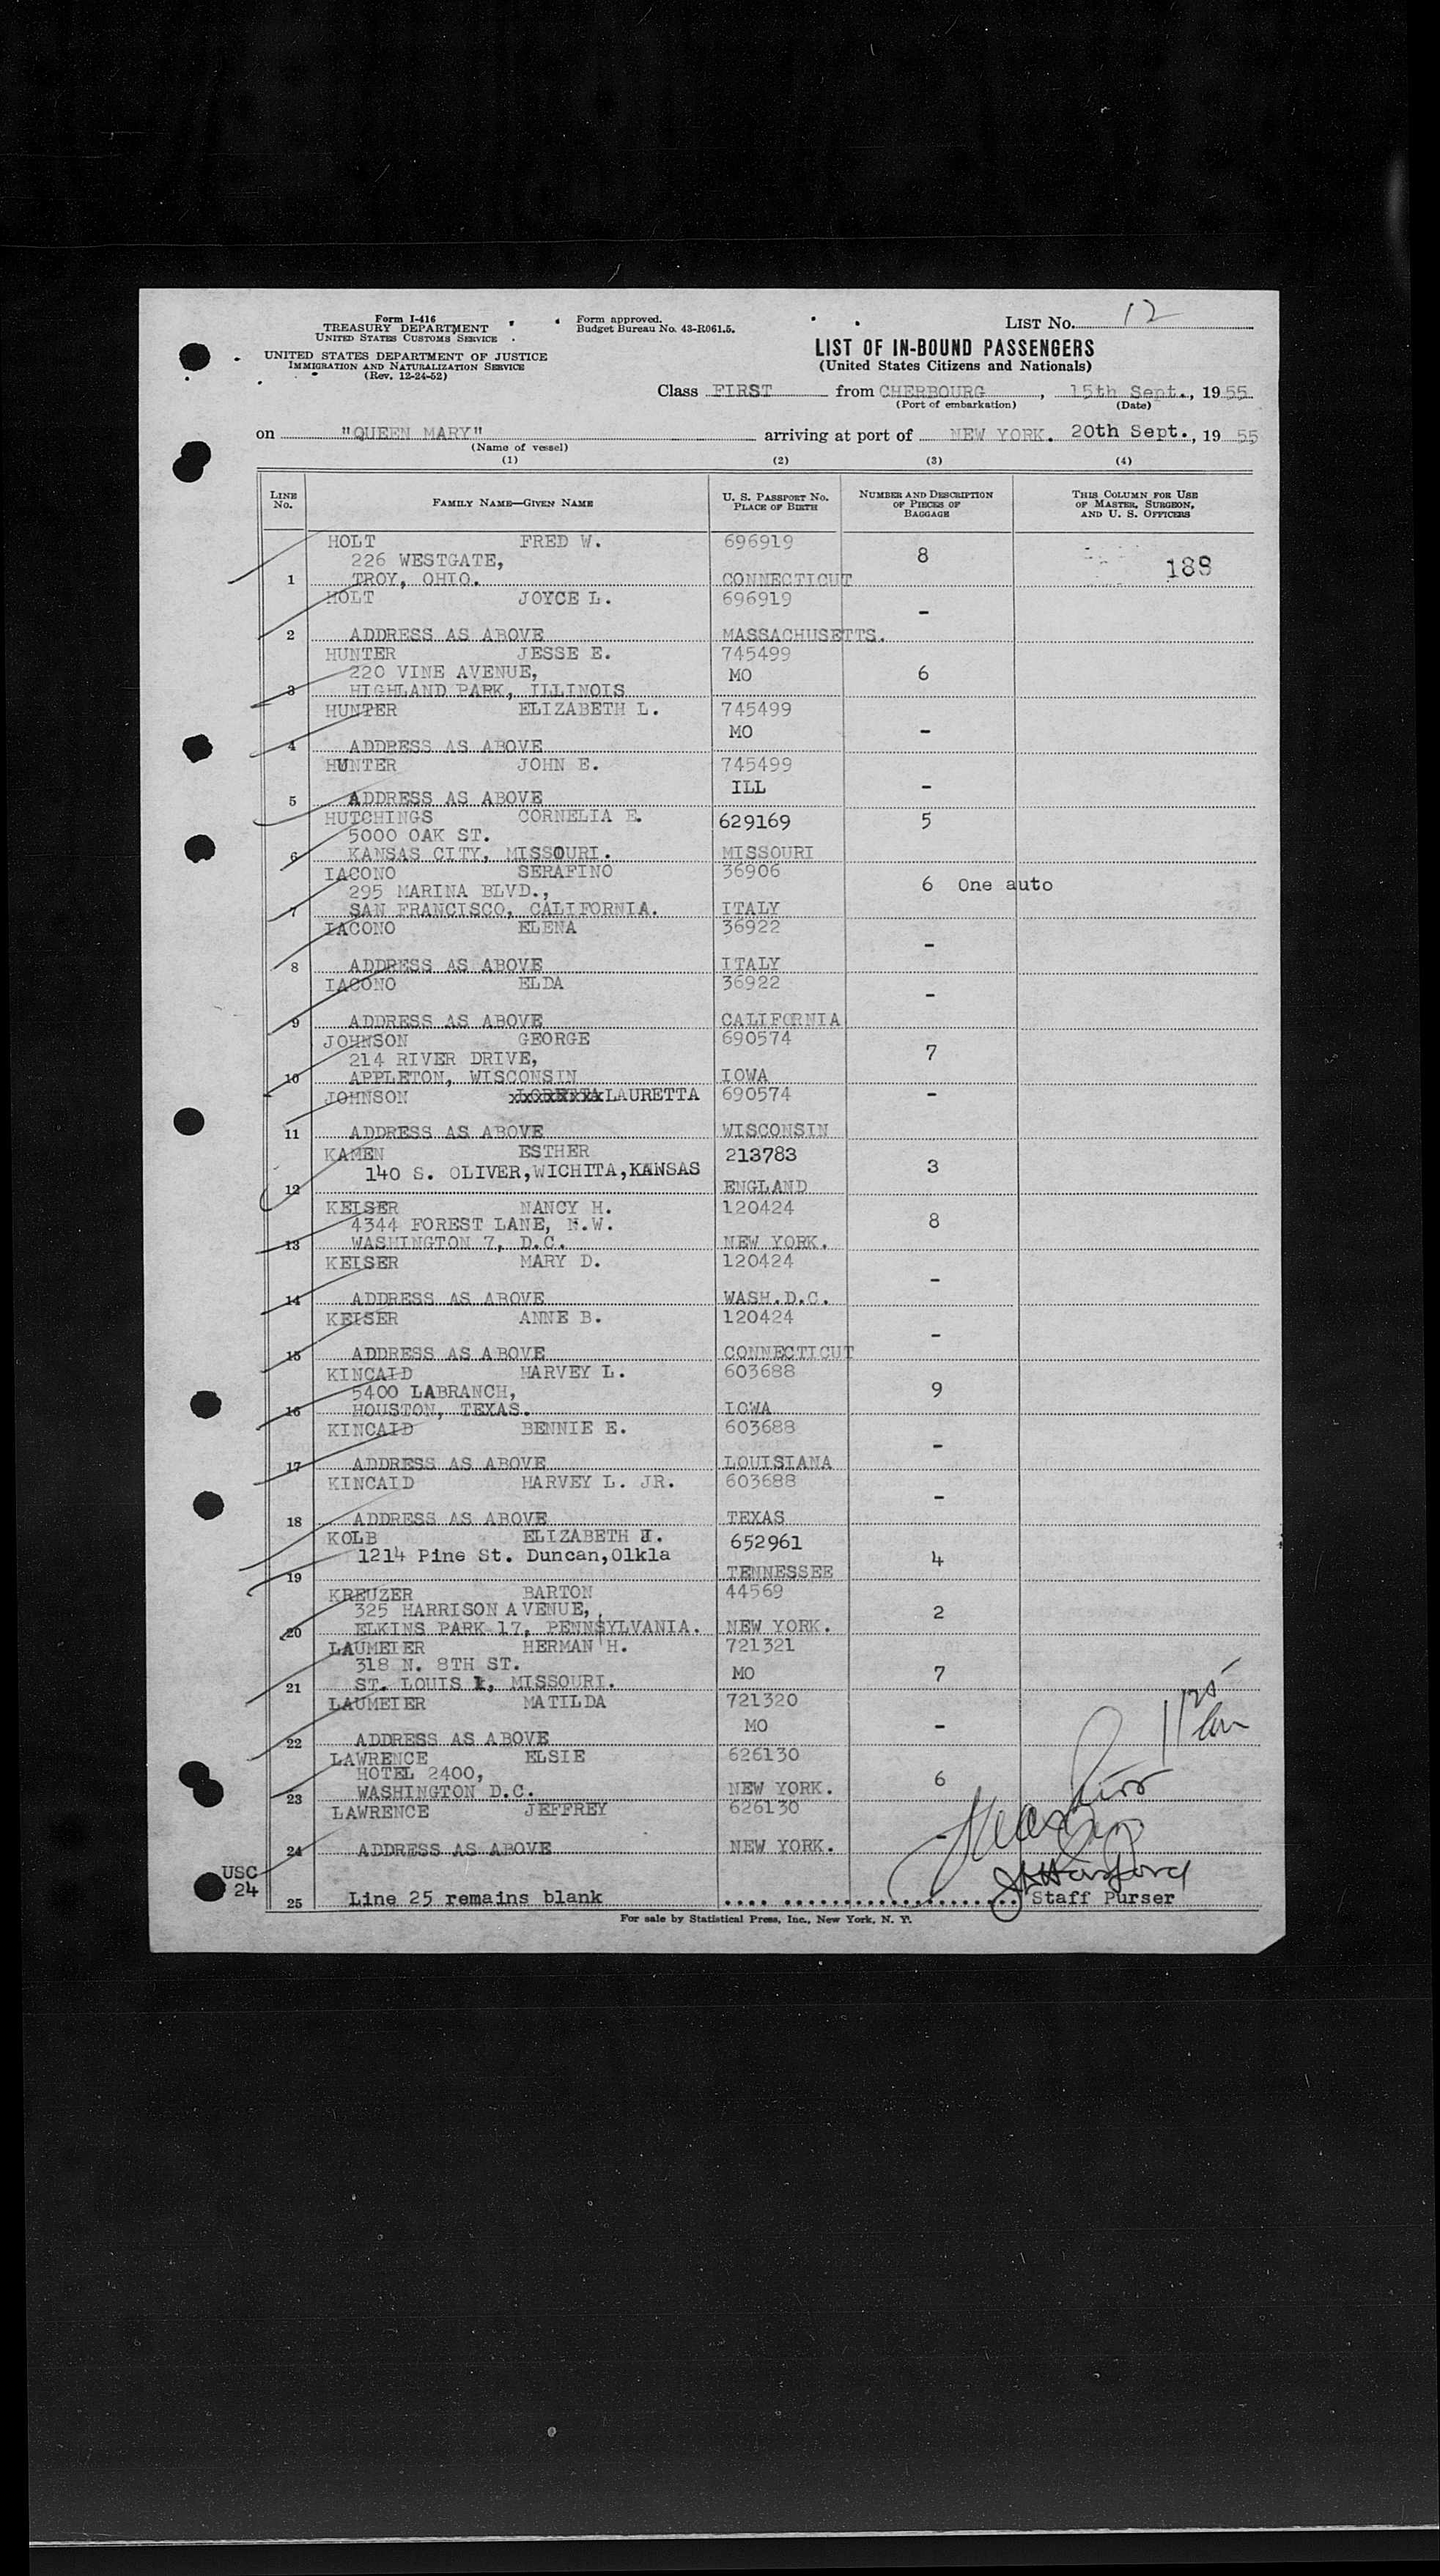 Form I-416
TREASURY DEPARTMENT
UNITED STATES CUSTOMS SERVICE
UNITED STATES DEPARTMENT OF JUSTICE
IMMIGRATION AND NATURALIZATION SERVICE
(Rev. 12-24-52)
Form approved.
Budget Bureau No. 43-R061.5.
LIST NO. 12
LIST OF IN-BOUND PASSENGERS
(United States Citizens and Nationals)
Class FIRST from CHERBOURG, 15th Sept., 1955
(Port of embarkation) (Date)
on "QUEEN MARY" arriving at port of NEW YORK. 20th Sept., 1955
(Name of vessel)
(1) (2) (3) (4)
LINE NO.
FAMILY NAME—GIVEN NAME
U. S. PASSPORT NO. PLACE OF BIRTH
NUMBER AND DESCRIPTION OF PIECES OF BAGGAGE
THIS COLUMN FOR USE OF MASTER, SURGEON, AND U. S. OFFICERS
HOLT FRED W. 696919
226 WESTGATE, 8 188
1 TROY, OHIO. CONNECTICUT
HOLT JOYCE L. 696919
-
2 ADDRESS AS ABOVE MASSACHUSETTS.
HUNTER JESSE E. 745499
220 VINE AVENUE, MO 6
3 HIGHLAND PARK, ILLINOIS
HUNTER ELIZABETH L. 745499
MO -
4 ADDRESS AS ABOVE
HUNTER JOHN E. 745499
ILL -
5 ADDRESS AS ABOVE
HUTCHINGS CORNELIA E. 629169 5
5000 OAK ST.
6 KANSAS CITY, MISSOURI. MISSOURI
IACONO SERAFINO 36906
295 MARINA BLVD., 6 One auto
7 SAN FRANCISCO, CALIFORNIA. ITALY
IACONO ELENA 36922
-
8 ADDRESS AS ABOVE ITALY
IACONO ELDA 36922
-
9 ADDRESS AS ABOVE CALIFORNIA
JOHNSON GEORGE 690574
214 RIVER DRIVE, 7
10 APPLETON, WISCONSIN IOWA
JOHNSON LORETTA LAURETTA 690574 -
11 ADDRESS AS ABOVE WISCONSIN
KAMEN ESTHER 213783
140 S. OLIVER,WICHITA,KANSAS 3
12 ENGLAND
KEISER NANCY H. 120424
4344 FOREST LANE, N.W. 8
13 WASHINGTON 7, D.C. NEW YORK.
KEISER MARY D. 120424
-
14 ADDRESS AS ABOVE WASH.D.C.
KEISER ANNE B. 120424
-
15 ADDRESS AS ABOVE CONNECTICUT
KINCAID HARVEY L. 603688
5400 LABRANCH, 9
16 HOUSTON, TEXAS. IOWA
KINCAID BENNIE E. 603688
-
17 ADDRESS AS ABOVE LOUISIANA
KINCAID HARVEY L. JR. 603688
-
18 ADDRESS AS ABOVE TEXAS
KOLB ELIZABETH J. 652961
1214 Pine St. Duncan,Olkla 4
19 TENNESSEE
KREUZER BARTON 44569
325 HARRISON AVENUE, 2
20 ELKINS PARK 17, PENNSYLVANIA. NEW YORK.
LAUMEIER HERMAN H. 721321
318 N. 8TH ST. MO 7
21 ST. LOUIS 1, MISSOURI.
LAUMEIER MATILDA 721320
MO -
22 ADDRESS AS ABOVE
LAWRENCE ELSIE 626130
HOTEL 2400, 6
23 WASHINGTON D.C. NEW YORK.
LAWRENCE JEFFREY 626130
-
24 ADDRESS AS ABOVE NEW YORK.
USC
24
25 Line 25 remains blank Staff Purser
For sale by Statistical Press, Inc., New York, N. Y.